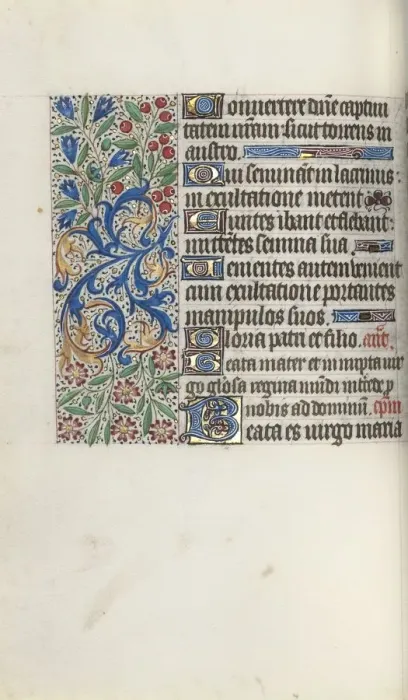 Conuertere dñe captiui
tatem nr̃am sicut torrens in
austro.
Qui seminãt in lacrimis:
in exultatione metent
Euntes ibant et flebant:
mittẽtes semina sua.
Uenientes autem uenient
cum exultatione portantes
manipulos suos.
Gloria patri et filio. añt.
Beata mater et innupta uir
go gl̃osa regina mũdi intẽde p̃
nobis ad dominũ.
Beata es uirgo maria